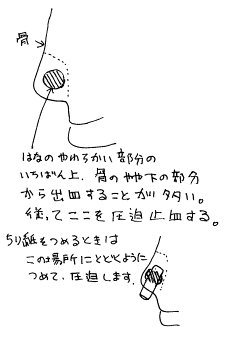 骨
はなのやわらかい部分の
いちばん上、骨のやや下の部分
から出血することが多い。
従ってここを圧迫止血する。
ちり紙をつめるときは
この場所にとどくように
つめて、圧迫します.